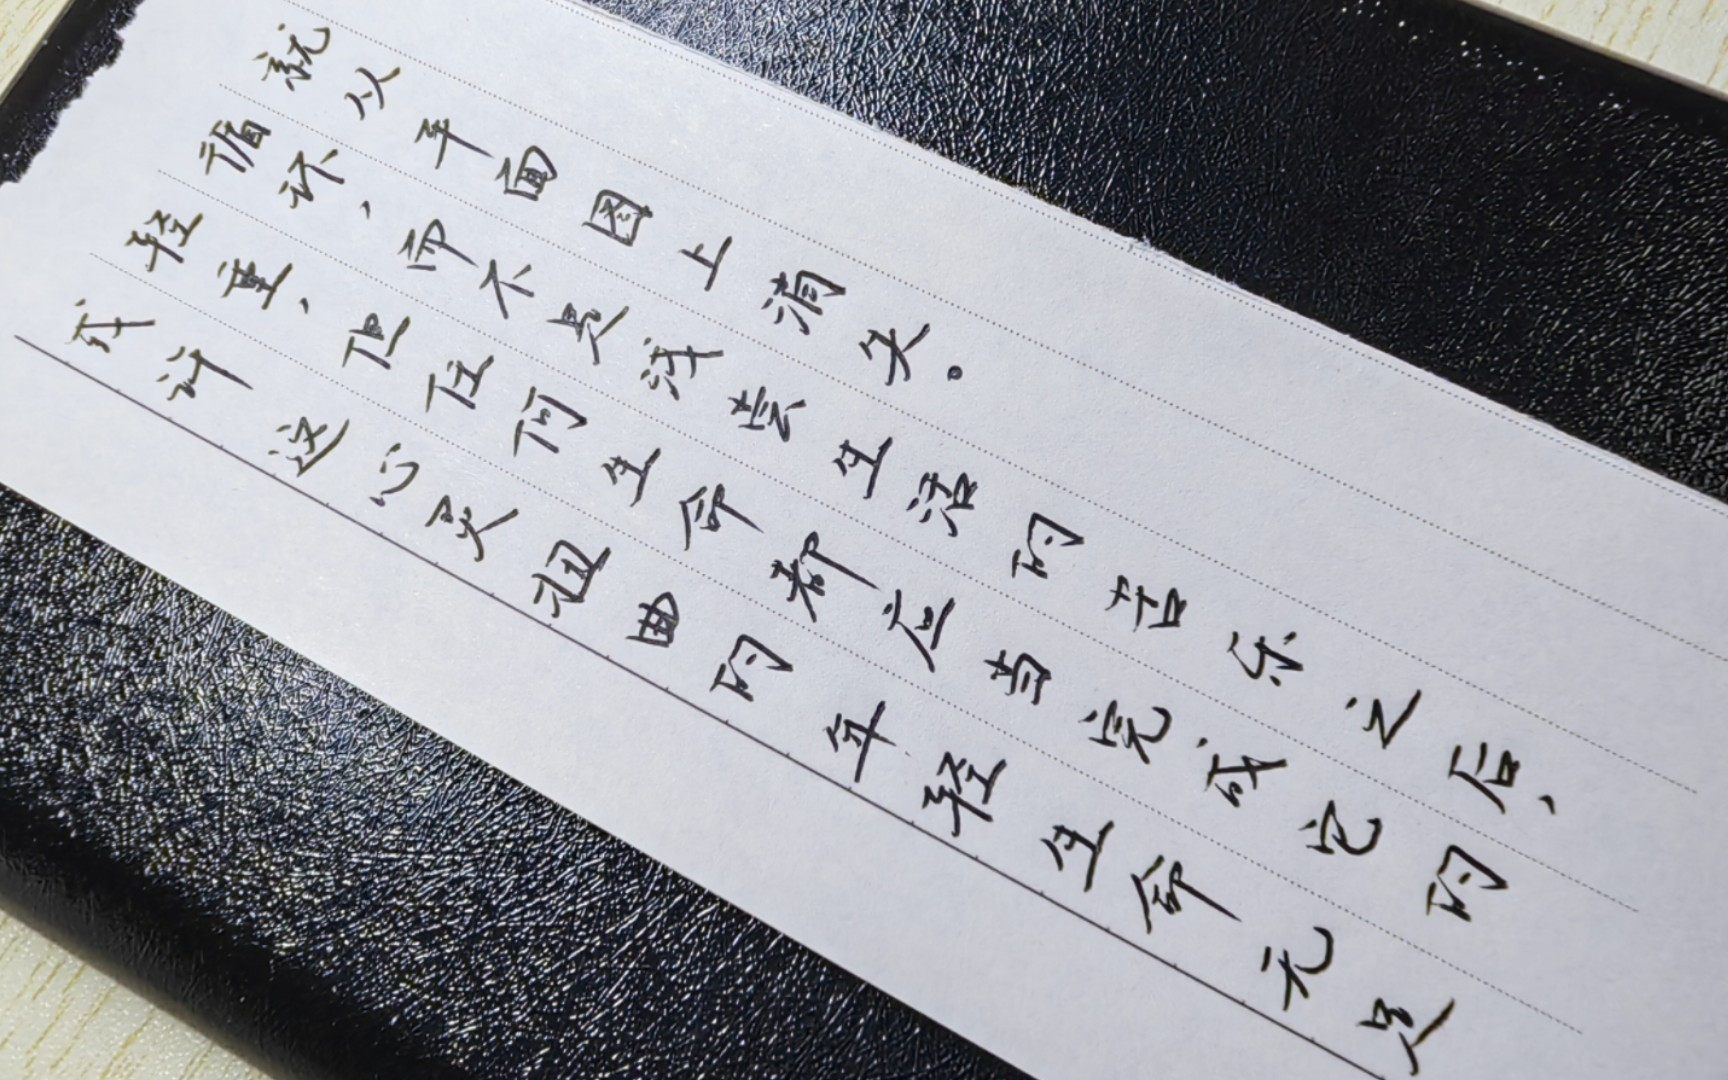 或许这心灵扭曲的年轻生命无足
轻重，但任何生命都应当完成它的
循环，而不是没尝生活的苦乐之后，
就从平面图上消失。